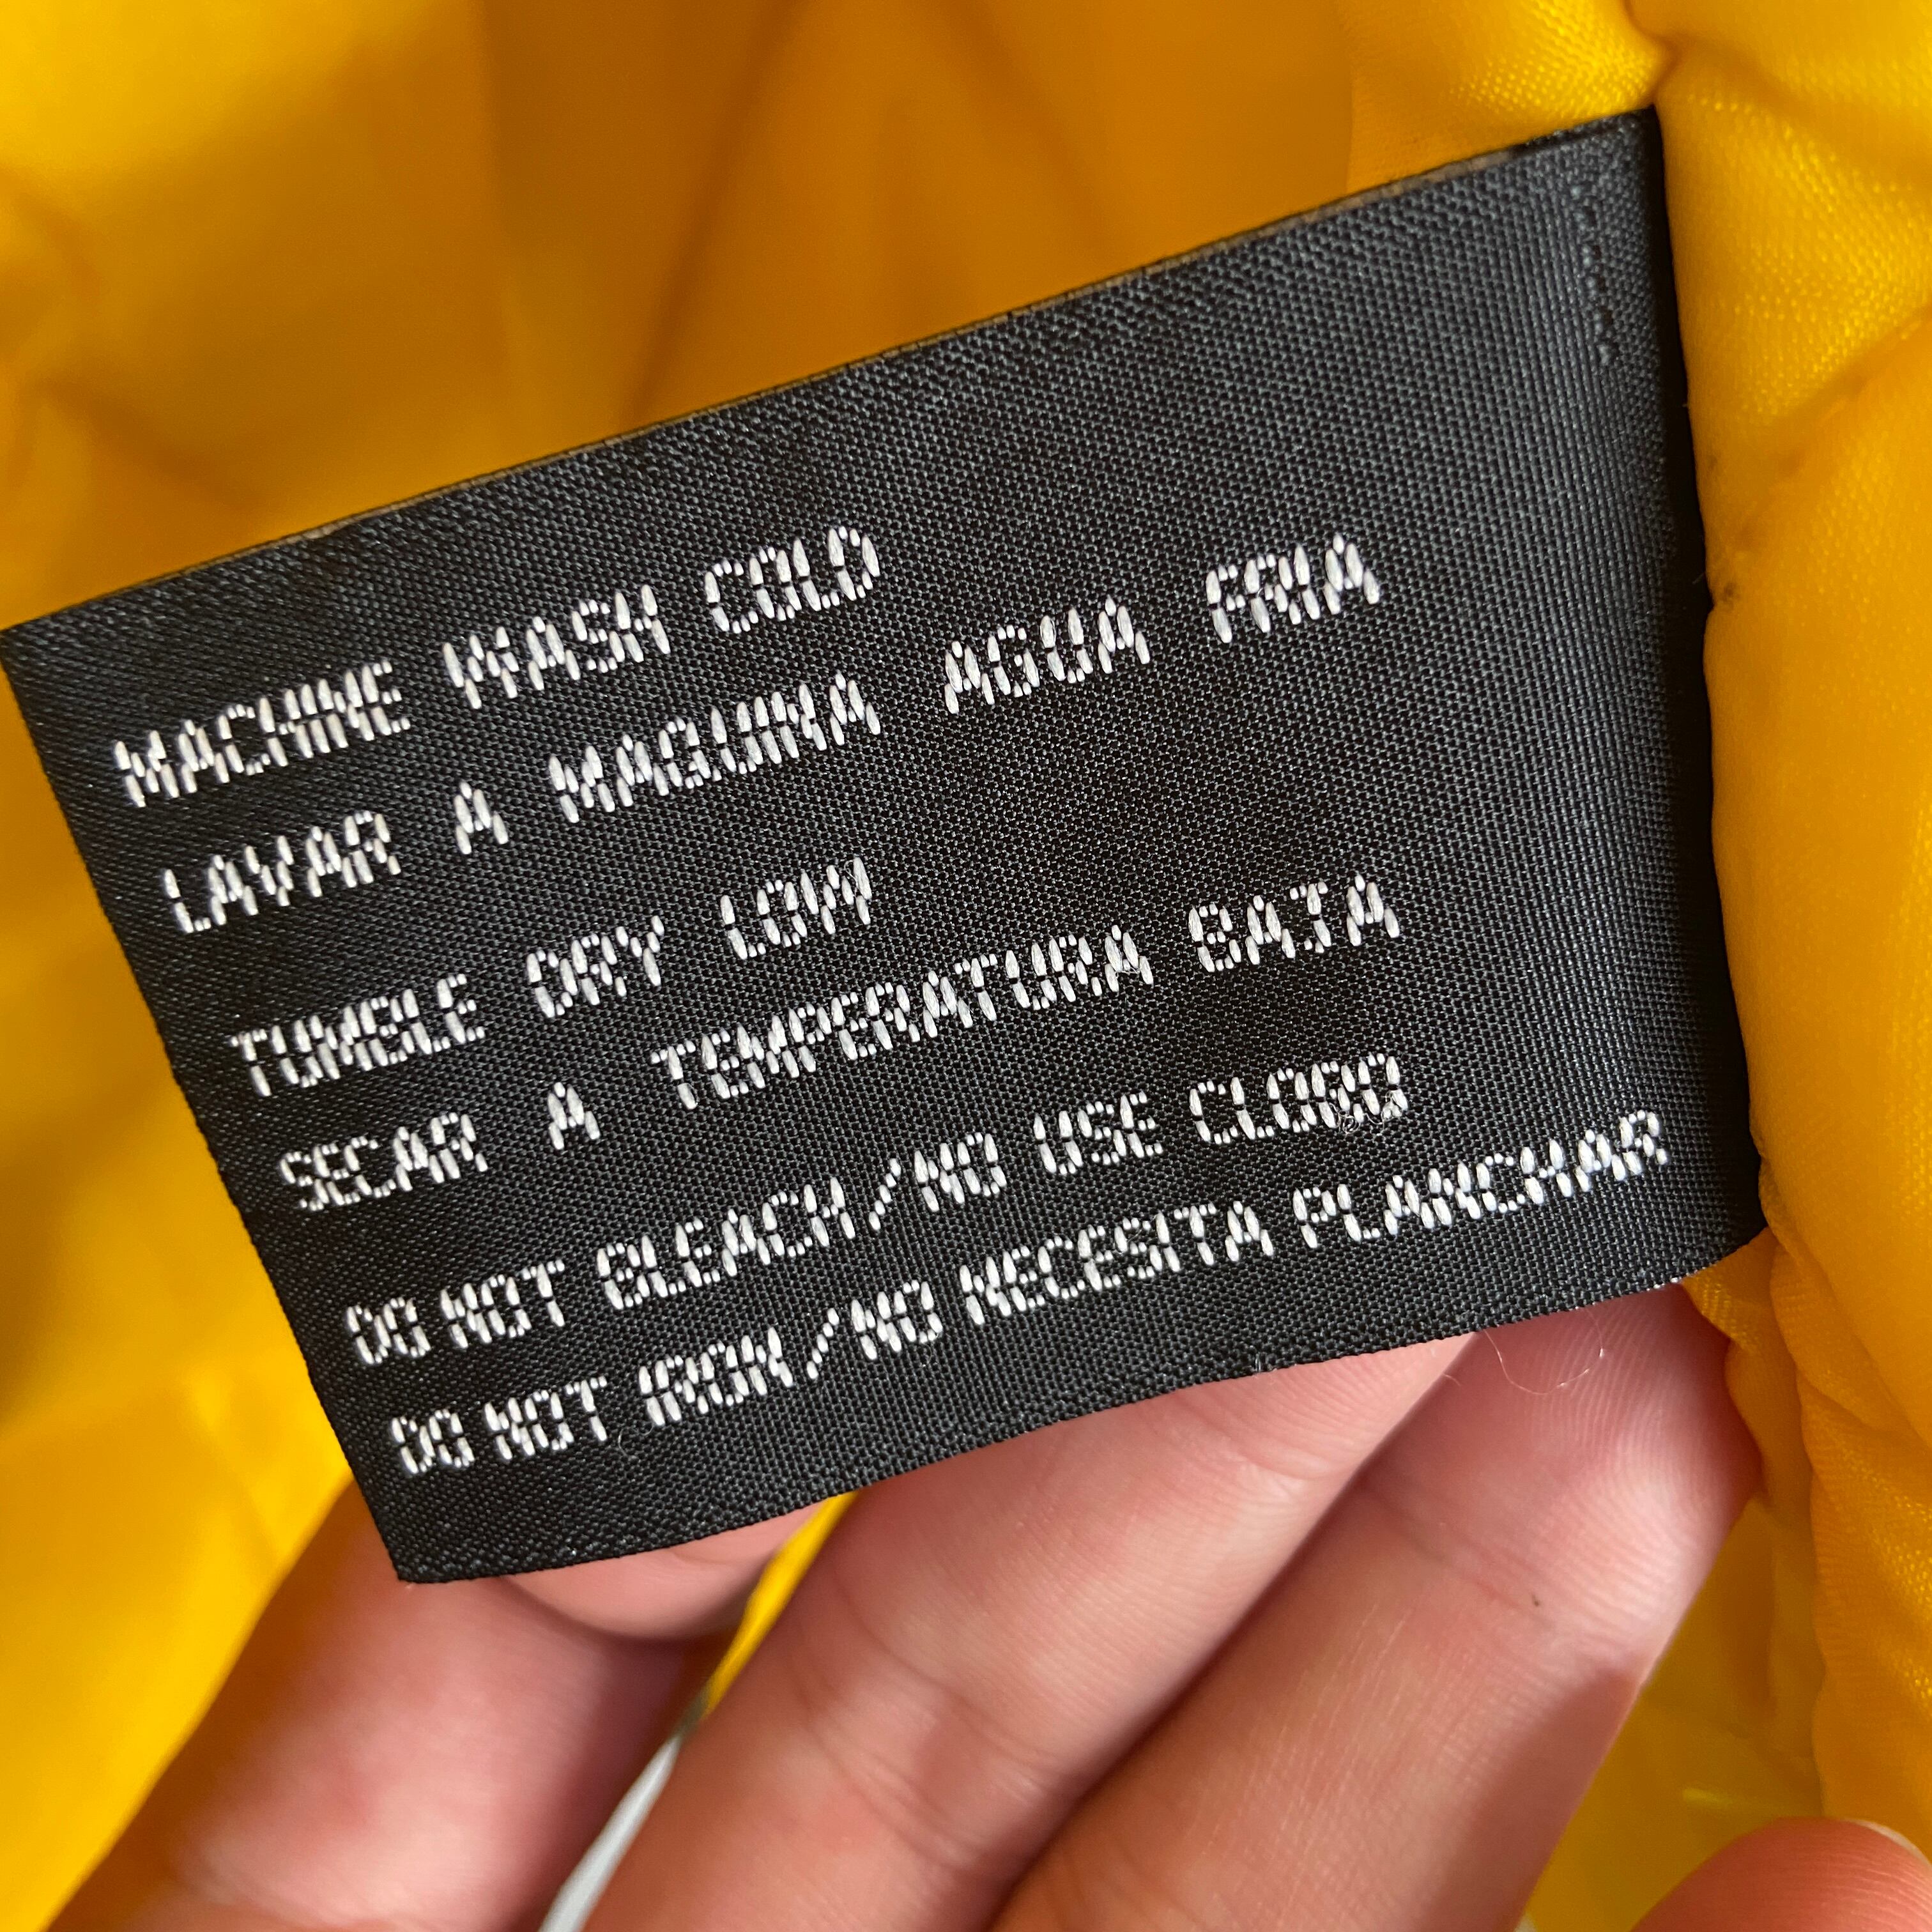 MACHINE WASH COLD
LAVAR A MAQUINA AGUA FRIA
TUMBLE DRY LOW
SECAR A TEMPERATURA BAJA
DO NOT BLEACH/NO USE CLORO
DO NOT IRON/NO NECESITA PLANCHAR